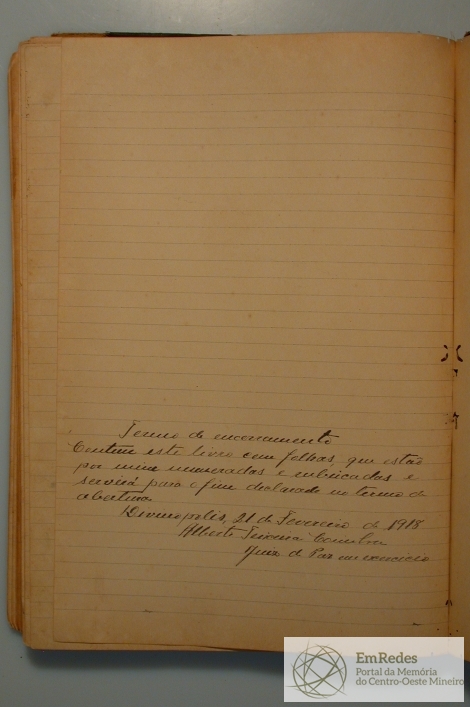 Termo de encerramento
Contem este livro cem folhas, que estão
por mim numeradas e rubricadas e
servirá para o fim declarado no termo de
abertura
Divinopolis, 21 de Fevereiro de 1918
Alberto Teixeira Coimbra
Juiz de Paz em exercicio
EmRedes
Portal da Memória
do Centro-Oeste Mineiro